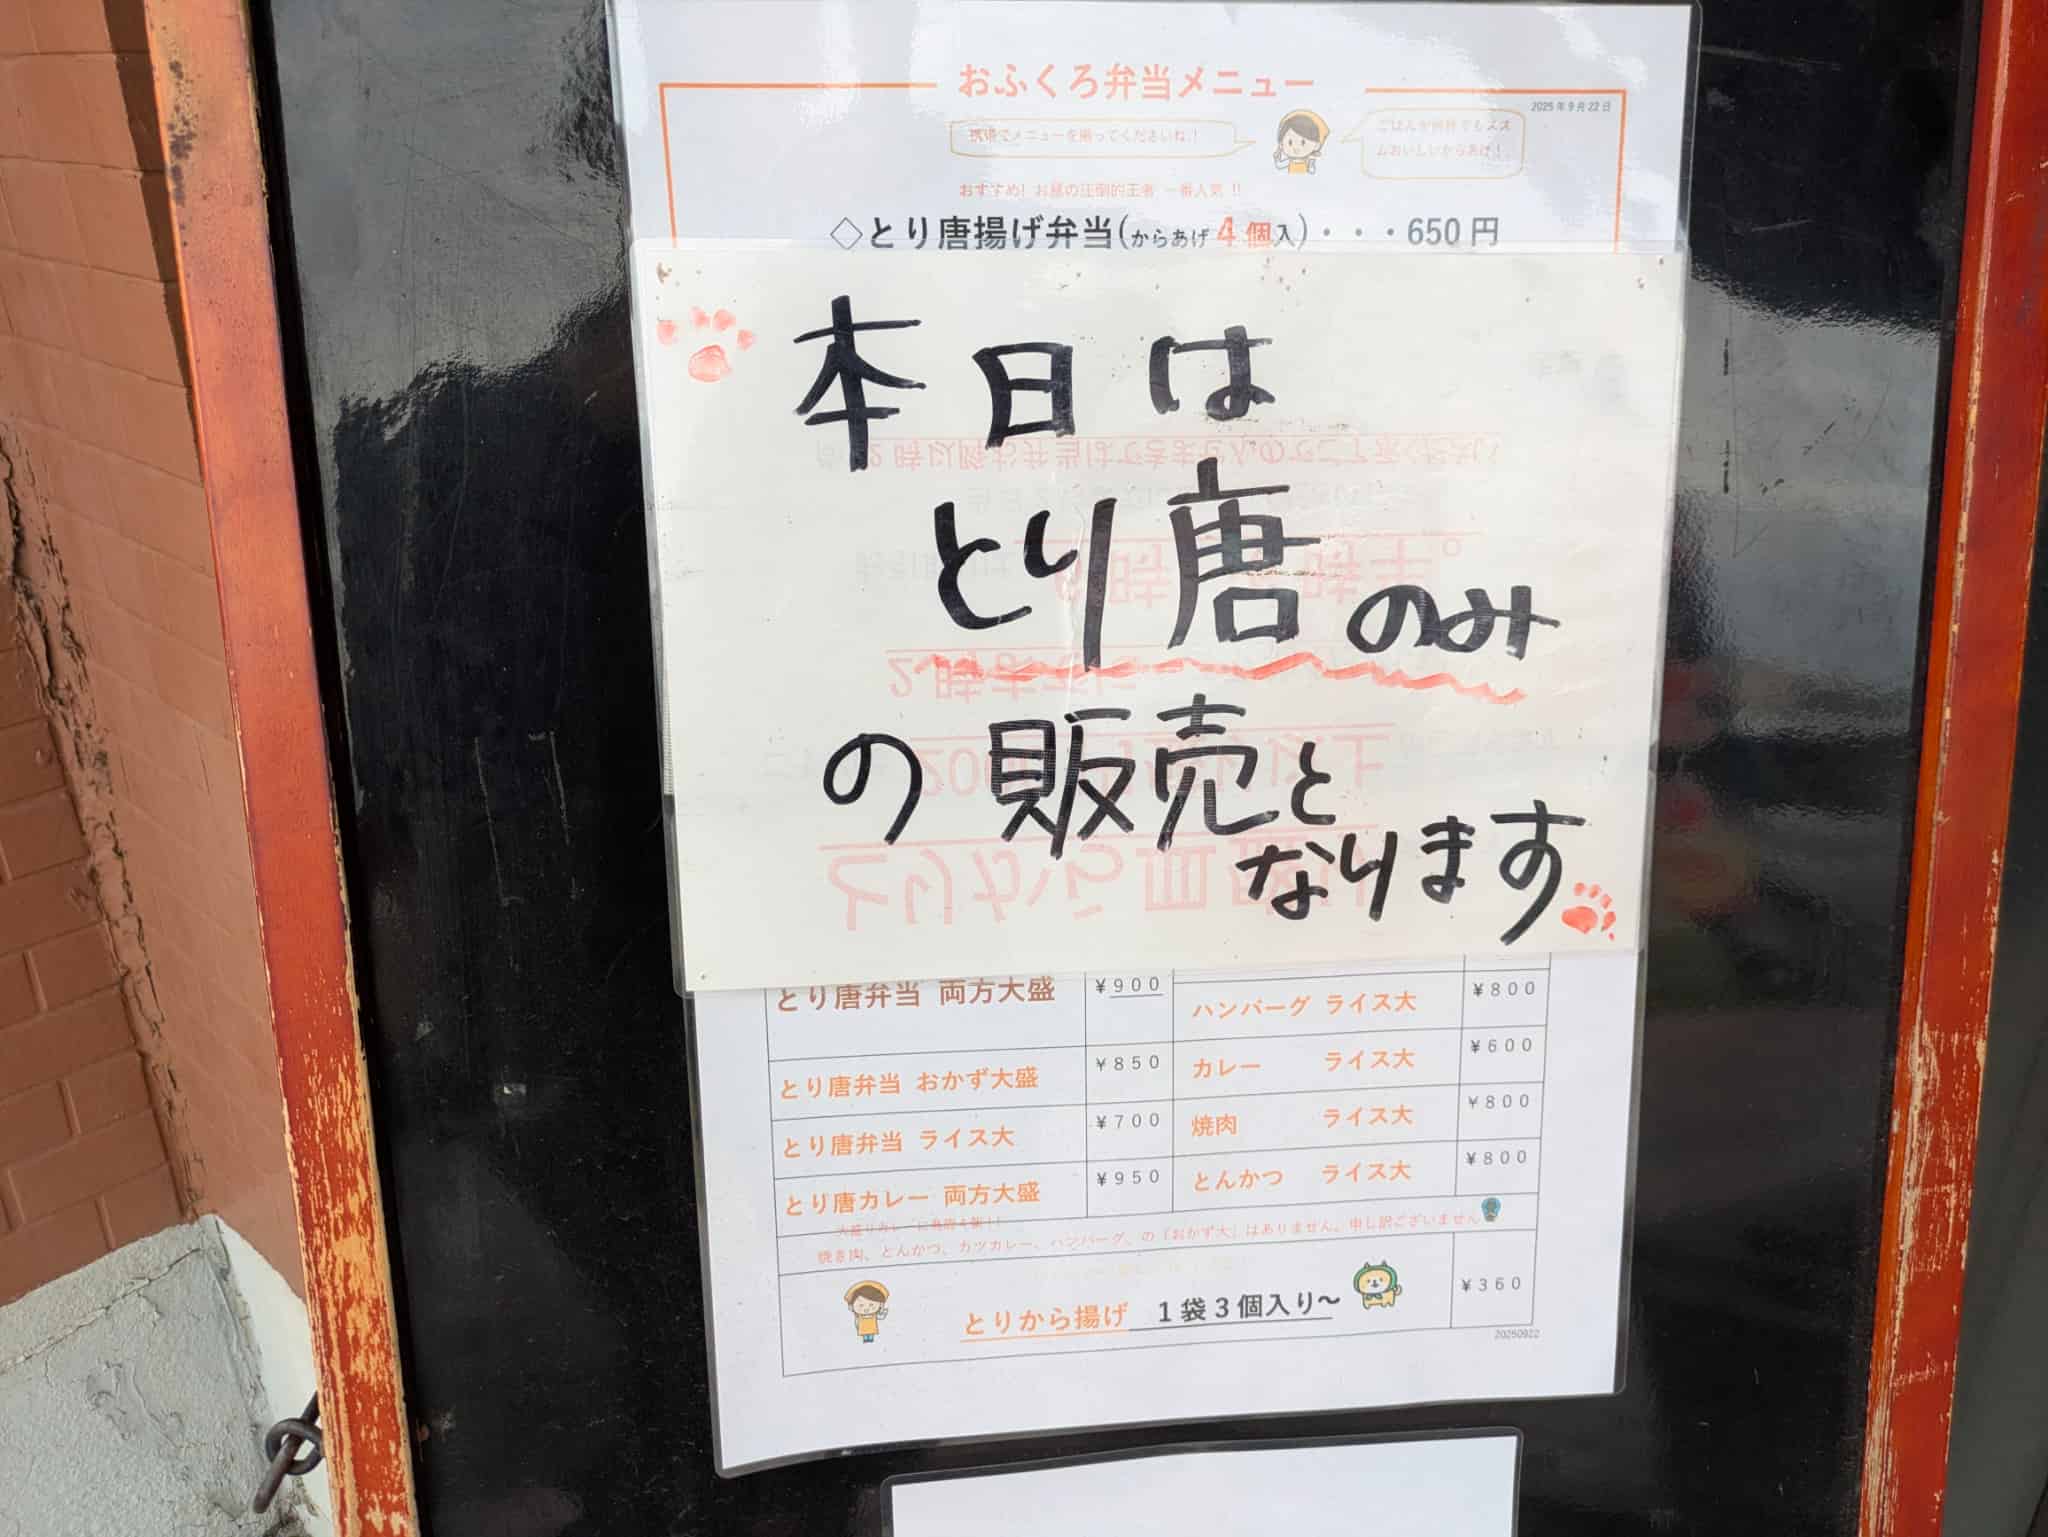 おふくろ弁当メニュー
2025年9月22日
携帯でメニューを撮ってくださいね!
ごはんが何杯でもスス
ムおいしいからあげ!
おすすめ! お昼の圧倒的王者 一番人気 !!
◇とり唐揚げ弁当(からあげ4個入)・・・650円
本日は
とり唐のみ
の販売と
なります
とり唐弁当 両方大盛 ¥900
ハンバーグ ライス大 ¥800
とり唐弁当 おかず大盛 ¥850
カレー ライス大 ¥600
とり唐弁当 ライス大 ¥700
焼肉 ライス大 ¥800
とり唐カレー 両方大盛 ¥950
とんかつ ライス大 ¥800
焼き肉、とんかつ、カツカレー、ハンバーグ、の「おかず大」はありません、申し訳ございません
とりから揚げ 1袋3個入り〜 ¥360
20250922